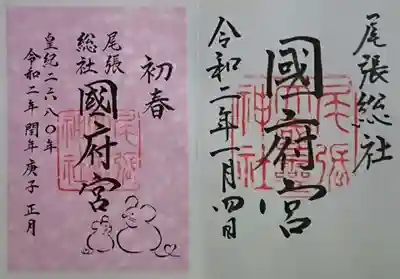 初春
尾張
総社
國府宮
皇紀二六八〇年
令和二年 閏年 庚子 正月
尾張総社
國府宮
令和二年一月四日